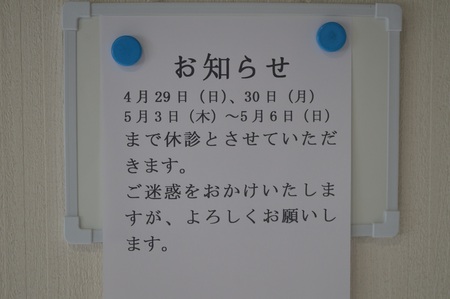 お知らせ
4月29日（日）、30日（月）
5月3日（木）～5月6日（日）
まで休診とさせていただ
きます。
ご迷惑をおかけいたしま
すが、よろしくお願いし
ます。